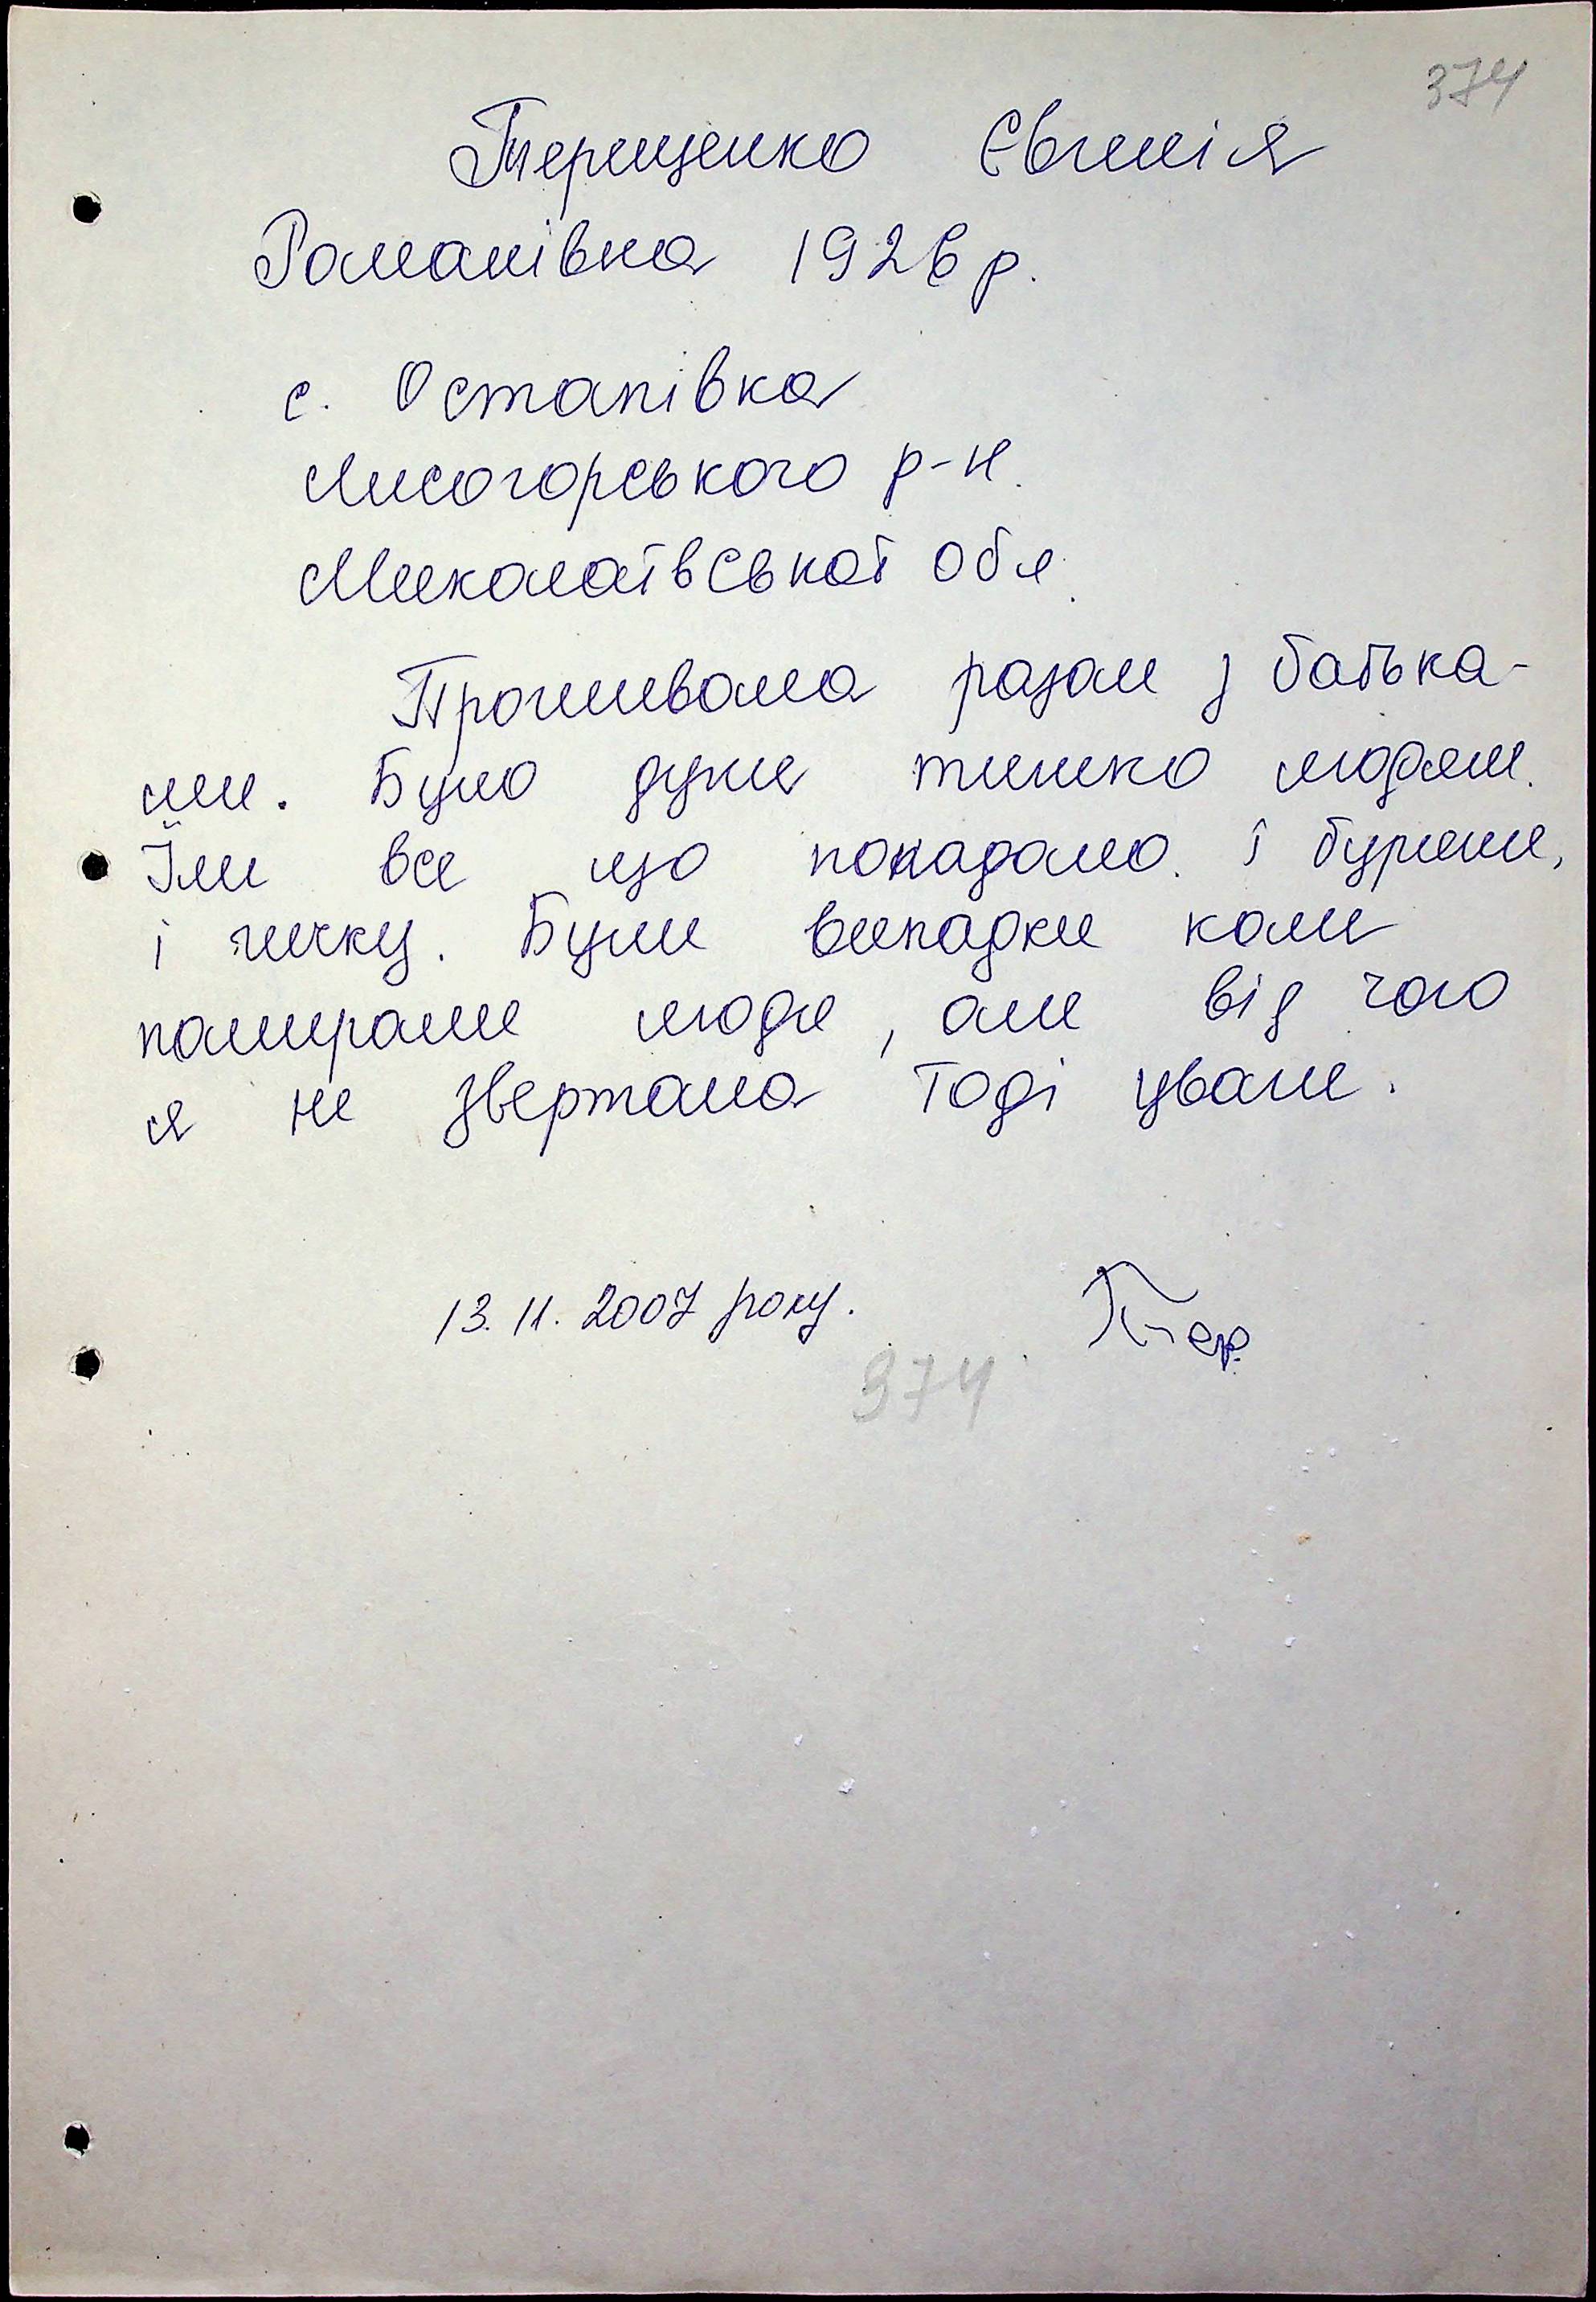 374
Терещенко Євгенія
Романівна 1926 р.
с. Остапівка
Лисогорського р-н.
Миколаївської обл.
Проживала разом з батька-
ми. Було дуже тяжко людям.
Їли все що попадало. і буряки,
і гичку. Були випадки коли
помирали люди, але від чого
я не звертала тоді уваги.
13.11.2007 року. Тер.
374